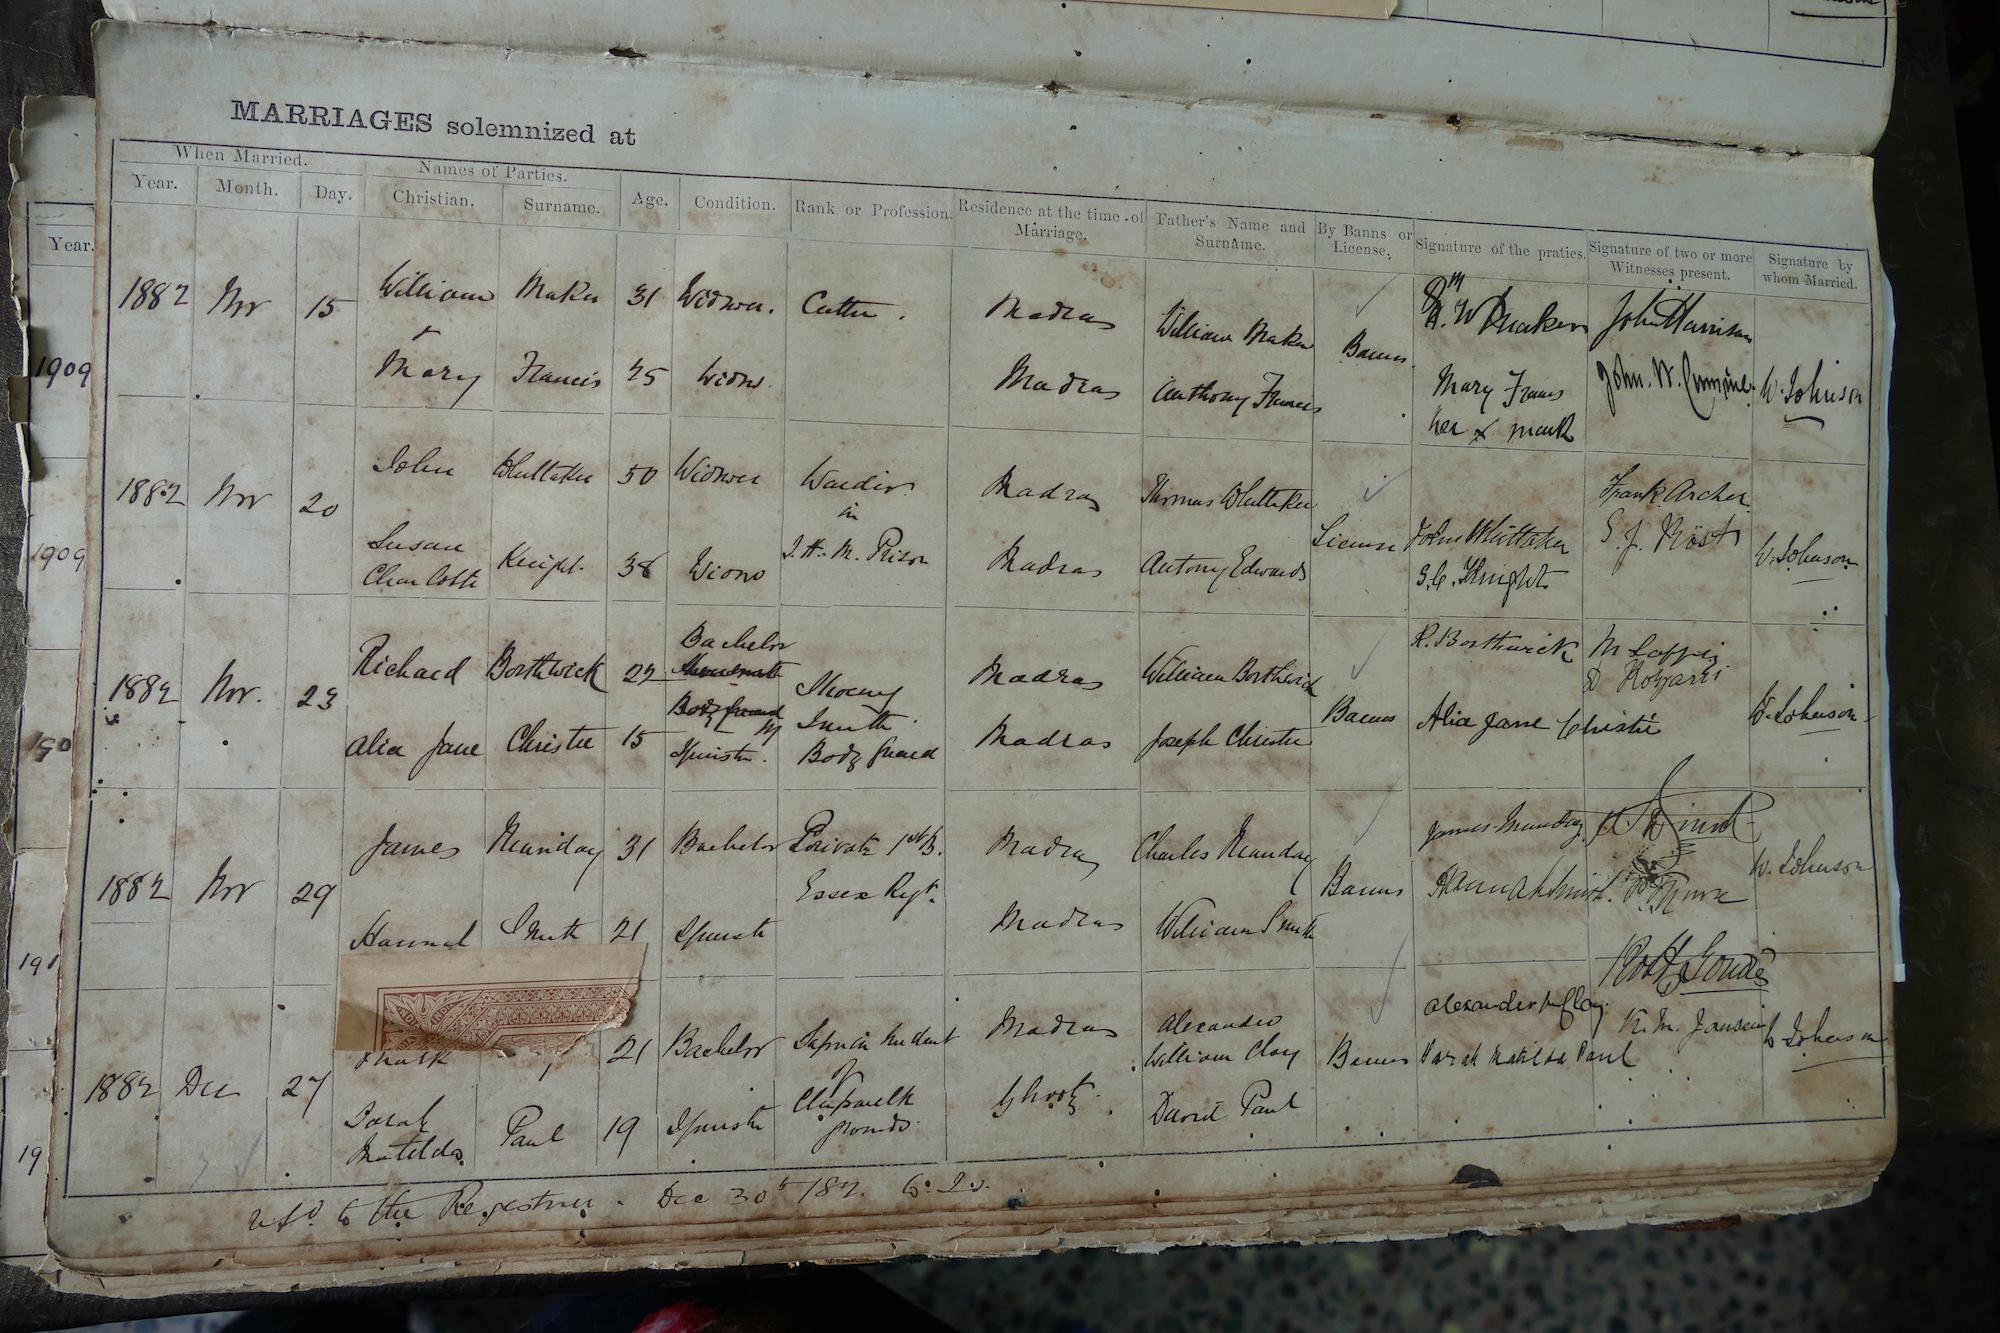 MARRIAGES solemnized at
When Married. Names of Parties.
Year. Month. Day. Christian. Surname. Age. Condition. Rank or Profession. Residence at the time of Marriage. Father's Name and Surname. By Banns or License. Signature of the praties. Signature of two or more Witnesses present. Signature by whom Married.
1882 Nov 15 William Maker 31 Widower. Cutter. Madras William Maker Banns W Maker John Harrison W. Johnson
&
Mary Francis 25 Widow. Madras Anthony Francis Mary Francis John. W.
her x mark
1882 Nov 20 John Whittaker 50 Widower Warder Madras Thomas Whittaker License John Whittaker Frank Archer W. Johnson
in
Susan Charlotte Knight 38 Widow H. M. Prison Madras Antony Edwards S. C. Knight S. J.
1882 Nov. 23 Richard Borthwick 22 Bachelor Shoeing Smith Body Guard Madras William Borthwick Banns R. Borthwick W. Johnson
Body Guard
Alia Jane Christie 15 Spinster. Madras Joseph Christie Alia Jane Christie
1882 Nov 29 James Munday 31 Bachelor Private 1st B. Essex Regt. Madras Charles Munday Banns James Munday W. Johnson
Hannah Smith 21 Spinster Madras William Smith Hannah Smith
1882 Dec 27 21 Bachelor of grounds Madras Alexander William Clay Banns Alexander W Clay. K. M. Jansen W Johnson
Sarah Matilda Paul 19 Spinster David Paul Sarah Matilda Paul
to the Registrar. Dec 30th 182.
Year.
1909
1909
190
191
19